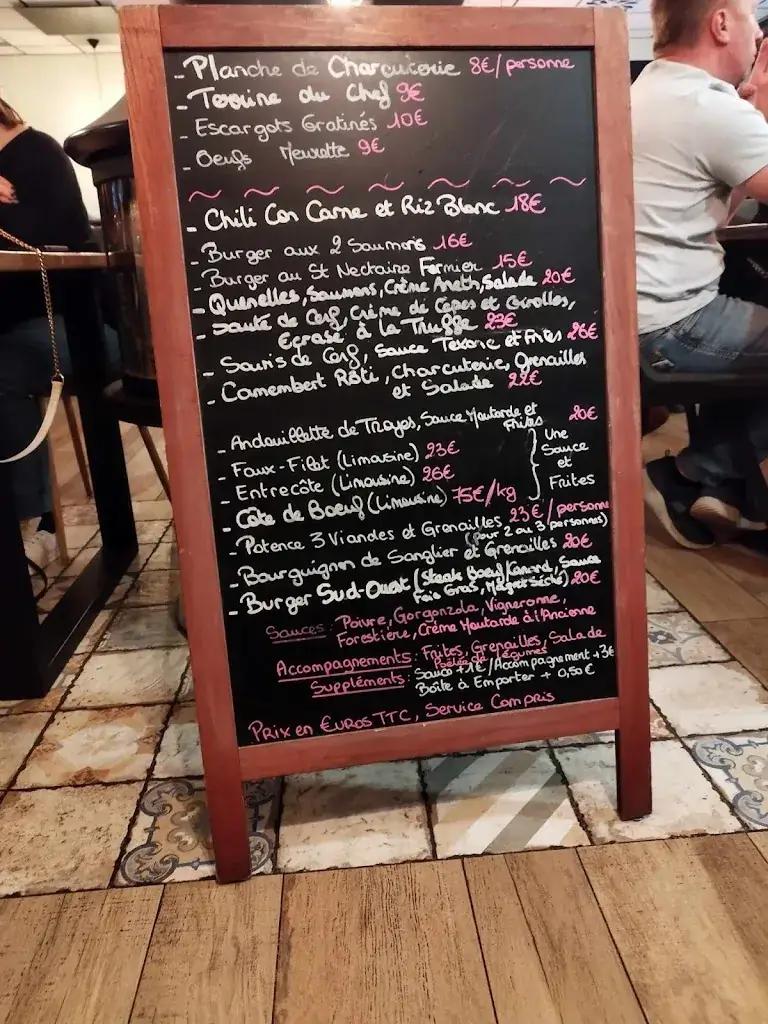 - Planche de Charcuterie 8€/personne
- Terrine du Chef 9€
- Escargots Gratinés 10€
- Oeufs Meurette 9€
- Chili Con Carne et Riz Blanc 18€
- Burger aux 2 Saumons 16€
- Burger au St Nectaire Fermier 15€
- Quenelles, Saumons, Crème Aneth, Salade 20€
- Sauté de Cerf, Crème de Cèpes et Girolles,
Ecrasé à la Truffe 23€
- Souris de Cerf, Sauce Texane et Frites 26€
- Camembert Rôti, Charcuterie, Grenailles
et Salade 22€
- Andouillette de Troyes, Sauce Moutarde et
Frites 20€
- Faux-Filet (Limousine) 23€
- Entrecôte (Limousine) 26€
- Côte de Boeuf (Limousine) 75€/kg
Une
Sauce
et
Frites
- Potence 3 Viandes et Grenailles 23€/personne
(pour 2 ou 3 personnes)
- Bourguignon de Sanglier et Grenailles 20€
- Burger Sud-Ouest (Steak Boeuf/Canard, Sauce
Foie Gras, Magret Séché) 20€
Sauces : Poivre, Gorgonzola, Vigneronne,
Forestière, Crème Moutarde à l'Ancienne
Accompagnements : Frites, Grenailles, Salade
Poêlée de Légumes
Suppléments : Sauce +1€/Accompagnement +3€
Boîte à Emporter + 0,50€
Prix en Euros TTC, Service Compris